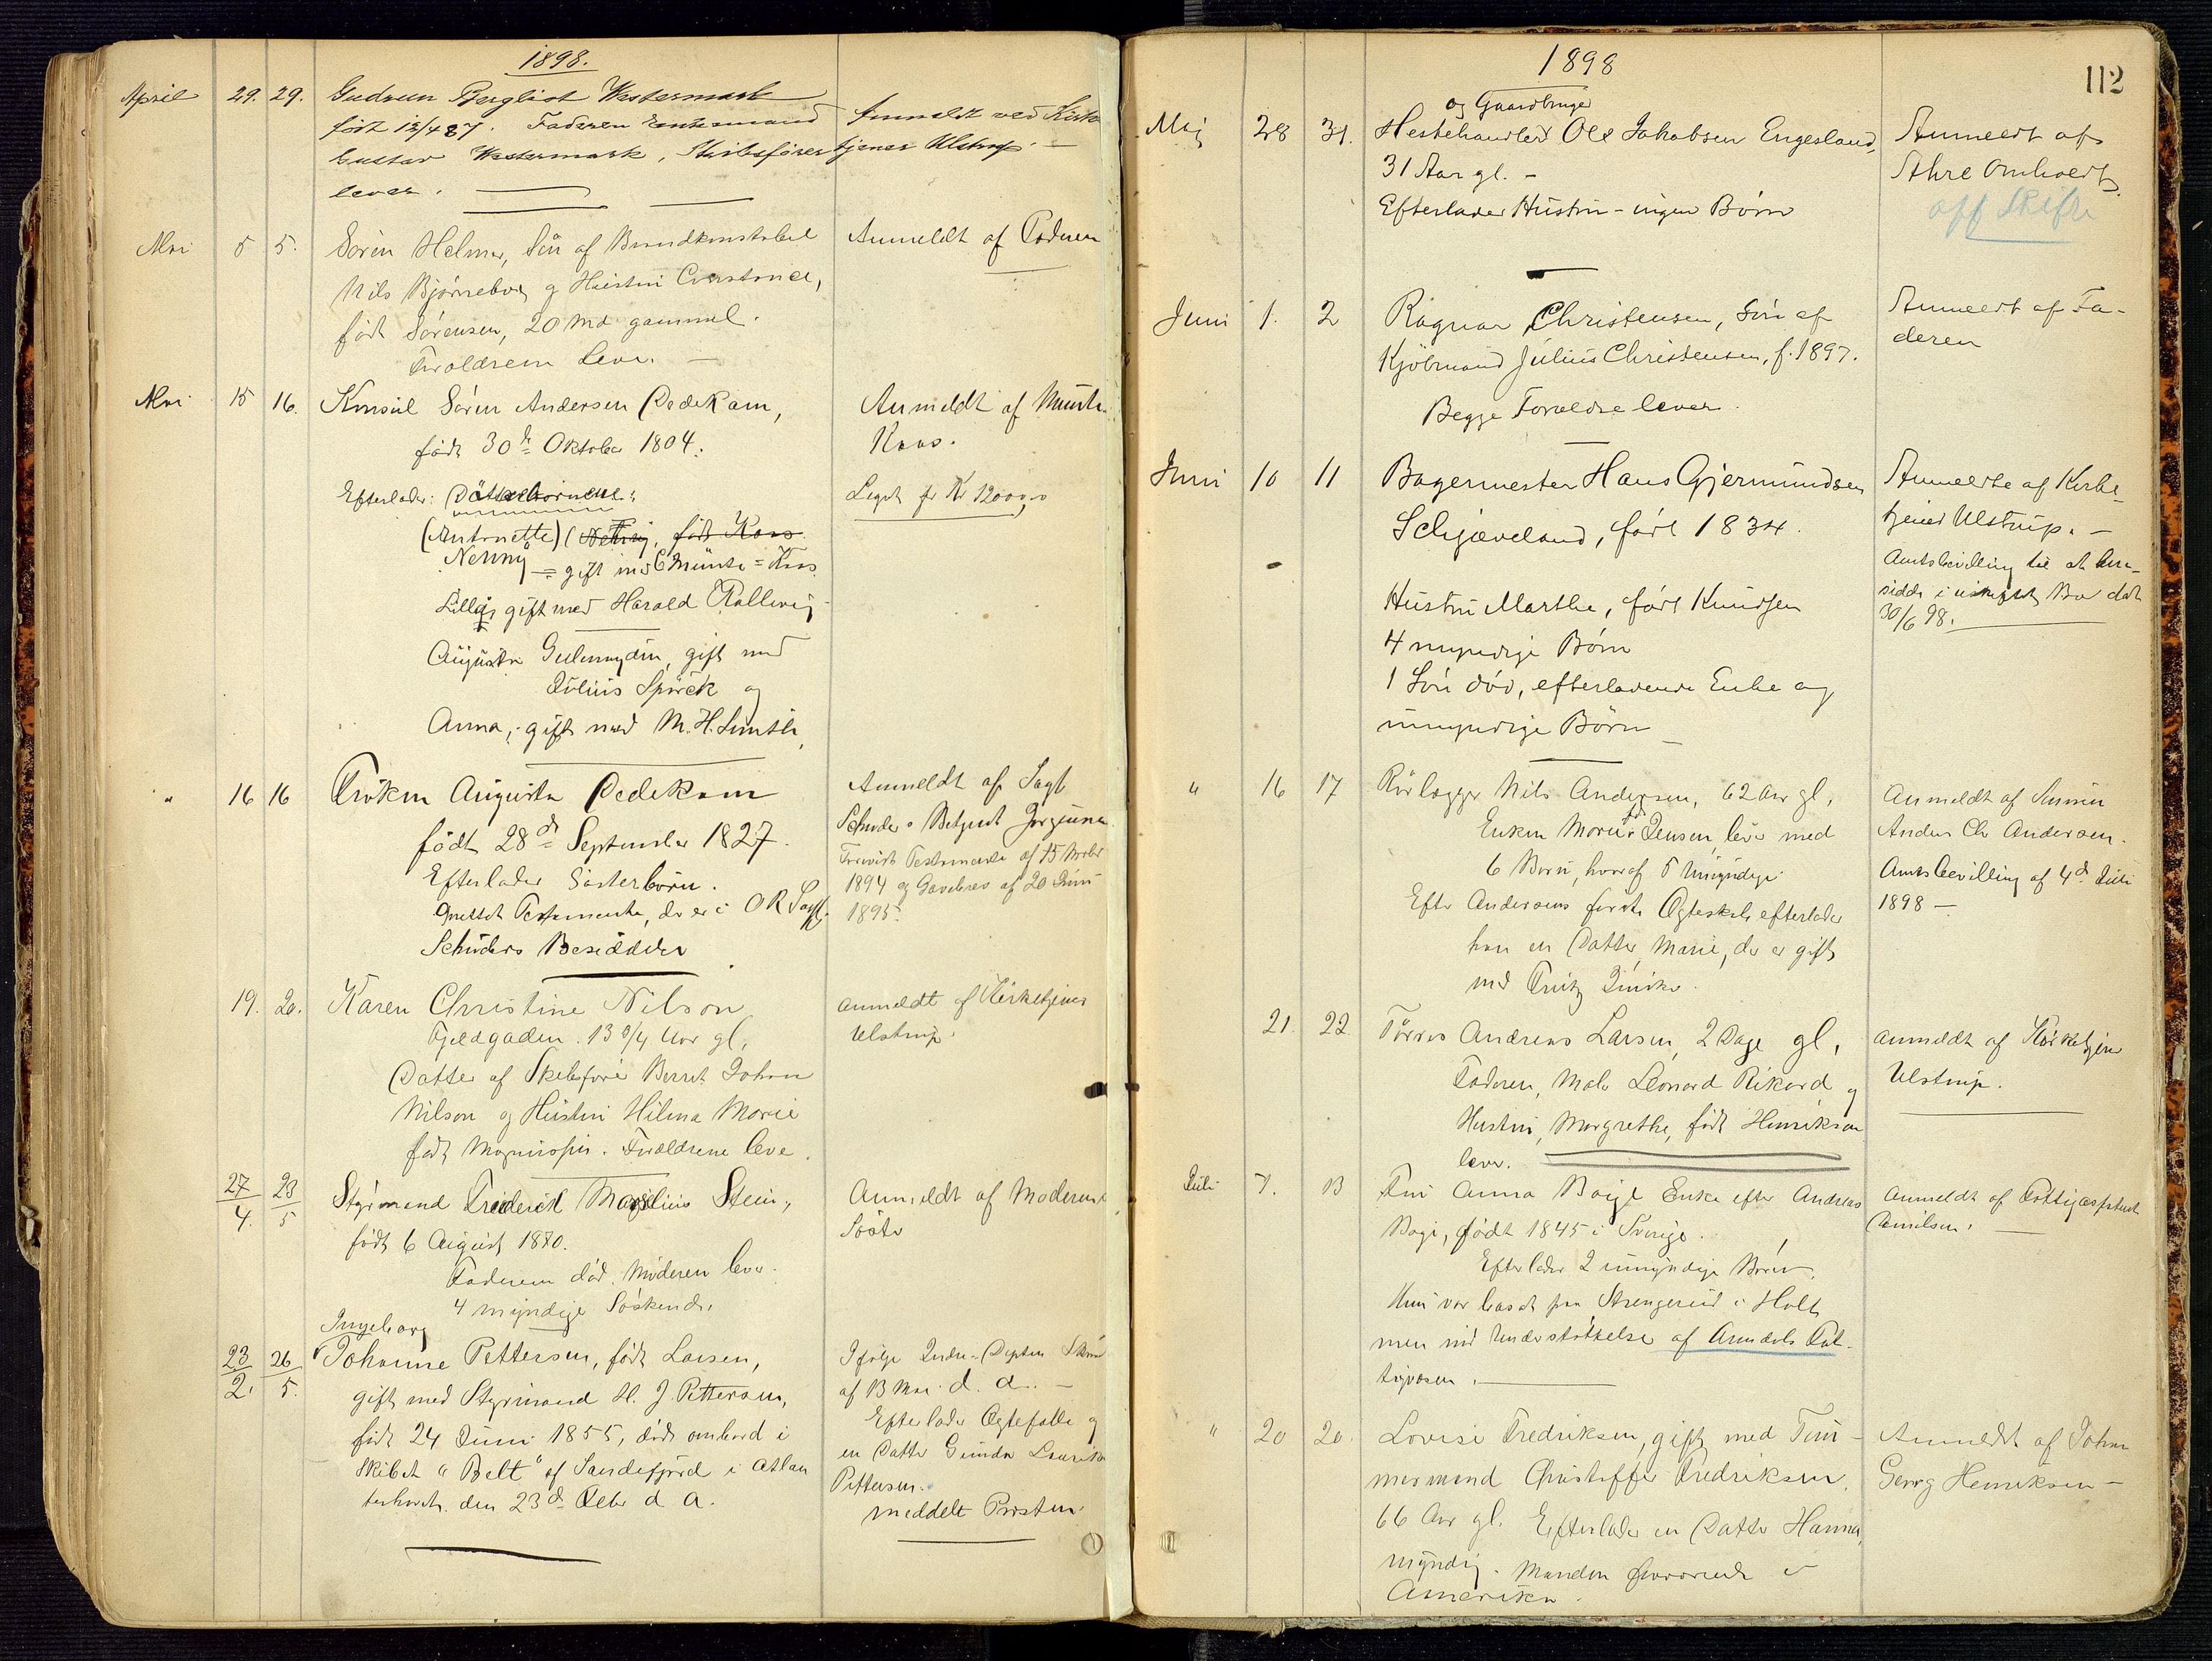 1898.
April 29. 29. Gudrun Bergliot Westermark
født 12/4 87. Faderen
Gustav Westermark, Skibsfører
lever.
Anmeldt ved Kirke
tjener Ulstrup. —
Mai 5 5. Søren Helmer, Søn af Brandkonstabel
Nils Bjørnebo og Hustru Constance,
født Sørensen, 20 Md gammel.
Forældrene Lever. —
Anmeldt af Faderen
Mai 15 16. Konsul Søren Andersen Dedekam,
født 30d Oktober 1804.
Efterlader: Døtrene:
(Antonette) (Nenny, født Kaas
Nenny = gift med C Münte = Kaas
Lilly, gift med Harald Kallevig
Augusta Gulemydin, gift med
Julius Spörck og
Anna, gift med M. H. Smith,
Anmeldt af Münte
Kaas.
Legat for Kr 12000,00
" 16 16 Frøken Augusta Dedekam
født 28d September 1827.
Efterlader Søsterbørn.
Oprettet Testamente, der er i OR Sagf.
Schrøders Besiddelse
Anmeldt af Sagf
Schrøder
1894 og Gavebrev af 20 Juni
1895.
19. 20. Karen Christine Nilson
Fjeldgaden. 13 3/4 Aar gl,
Datter af Skibsfører Bernt Johan
Nilson og Hustru Hilma Marie
født Forældrene leve.
anmeldt af Kirketjener
Ulstrup.
27/4. 23/5 Styrmand Frederik Marselius Stein,
født 6 August 1870.
Faderen død. Moderen lever.
4 myndige Søskende.
Anmeldt af Moderens
Søster
Ingeborg
23/2. 26/5. Johanne Pettersen, født Larsen,
gift med Styrmand H. J. Pettersen,
født 24 Juni 1855, død ombord i
Skibet "Belt" af Sandefjord i Atlan
terhavet. den 23d Febr d A.
Ifølge Indre-Depten Skriv
af 13 Mai d. a. —
Efterlader Ægtefælle og
en Datter Gunda Laurita
Pettersen.
meddelt Presten
1898
112
og Gaardbruger
Mai 28 31. Hestehandler Ole Jakobsen Engesland,
31 Aar gl. —
Efterlader Hustru – ingen Børn
Anmeldt af
Ahre Omholt.
off Skifte
Juni 1. 2 Ragnar Christensen, Søn af
Kjøbmand Julius Christensen, f. 1897.
Begge Forældre lever.
Anmeldt af Fa-
deren
Juni 10 11 Bagermester Hans Gjermundsen
Schjæveland, født 1834.
Hustru Marthe, født Knudsen
4 myndige Børn
1 Søn død, efterladende Enke og
umyndige Børn
Anmeldte af Kirke-
tjener Ulstrup. —
Amtsbevilling til at hen-
sidde i uskiftet Bo dat
30/6 98.
" 16 17 Rørlægger Nils Andersen, 62 Aar gl,
Enken Marie f. Jensen, lever med
6 Børn, hvoraf 5 Umyndige
Efter Andersens første Ægteskab efterlader
han en Datter, Marie, der er gift
med Fritz
Anmeldt af Sønnen
Anders Chr Andersen.
Amtsbevilling af 4d Juli
1898 —
21. 22 Tørres Andreas Larsen, 2 Dage gl,
Faderen, Maler Leonard Rikard og
Hustru, Margrethe, født Henriksen
lever.
anmeldt af Kirketjener
Ulstrup.
Juli 7. 13 Fru Anna Boije Enke efter Andreas
Boije, født 1845 i Sverige.
Efterlader 2 umyndige Børn.
Hun var bosat paa Strengereid i Holt
men med Understøttelse af Arendals Fat-
tigvæsen.
Anmeldt af Fattigforstand
" 20 20. Lovise Fredriksen, gift med Tøm-
mermand Christoffer Fredriksen.
66 Aar gl. Efterlader en Datter Hanna,
myndig. Manden fraværende i
Amerika.
Anmeldt af Johan
Georg Henriksen —